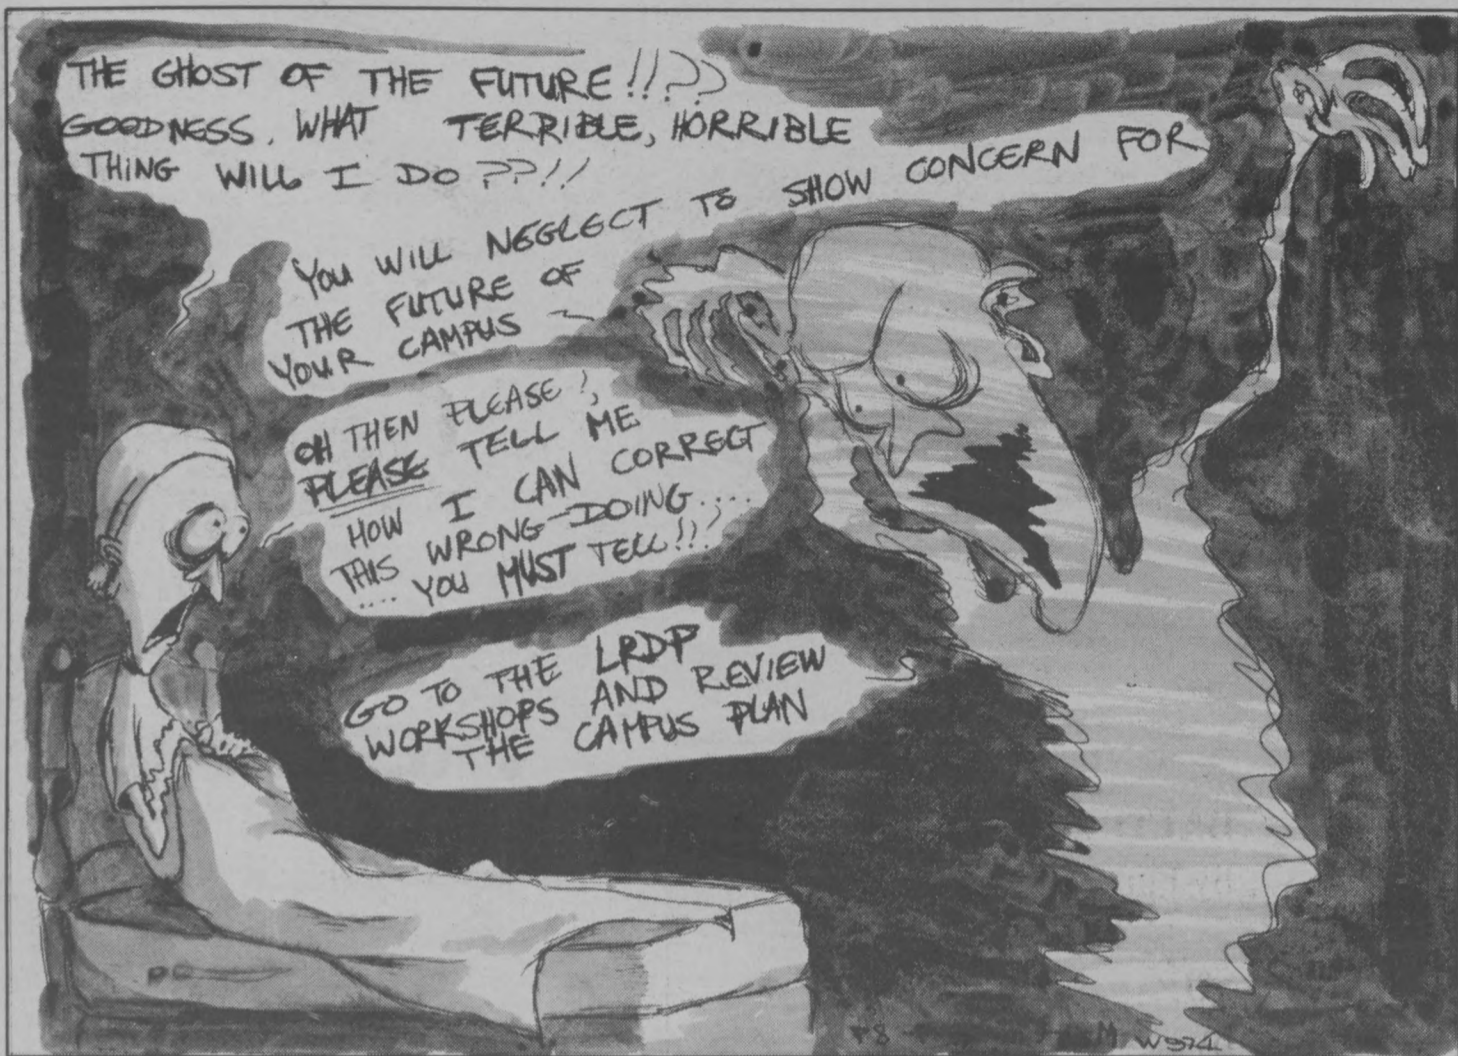 THE GHOST OF THE FUTURE!!??
GOODNESS. WHAT TERRIBLE, HORRIBLE
THING WILL I DO??!!
YOU WILL NEGLECT TO SHOW CONCERN FOR
THE FUTURE OF
YOUR CAMPUS
OH THEN PLEASE!,
PLEASE TELL ME
HOW I CAN CORRECT
THIS WRONG-DOING....
.... YOU MUST TELL!!!
GO TO THE LRDP
WORKSHOPS AND REVIEW
THE CAMPUS PLAN